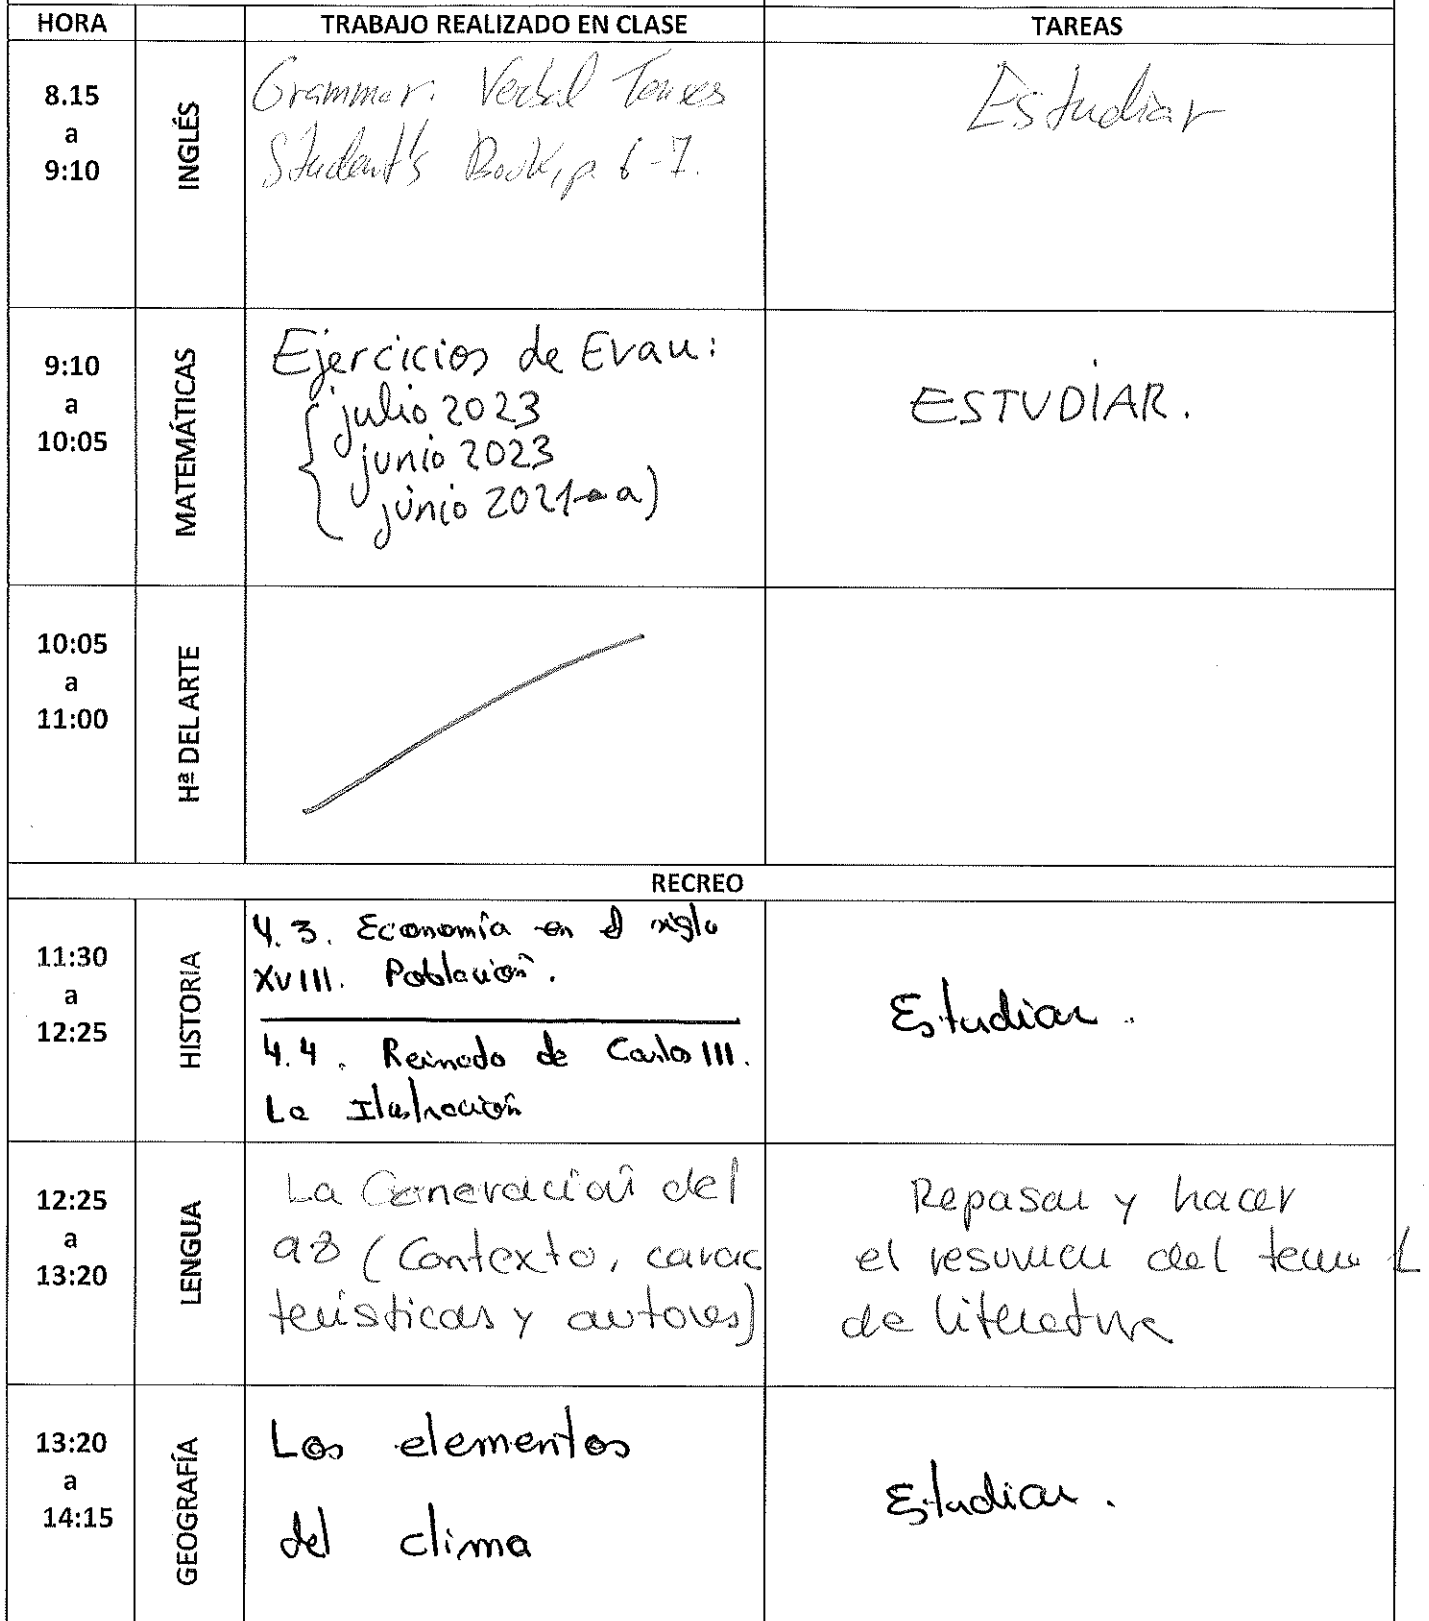 HORA TRABAJO REALIZADO EN CLASE TAREAS
8.15
a
9:10
INGLÉS
Grammar. Verbal Tenses
Student's Book, p. 6-7.
Estudiar
9:10
a
10:05
MATEMÁTICAS
Ejercicios de Evau:
julio 2023
junio 2023
junio 2021 → a)
ESTUDIAR.
10:05
a
11:00
Hª DEL ARTE
RECREO
11:30
a
12:25
HISTORIA
4.3. Economía en el siglo
XVIII. Población.
4.4. Reinado de Carlos III.
La Ilustración
Estudiar.
12:25
a
13:20
LENGUA
La Generación del
98 (Contexto, carac
terísticas y autores)
Repasar y hacer
el resumen del tema 1
de literatura
13:20
a
14:15
GEOGRAFÍA
Los elementos
del clima
Estudiar.